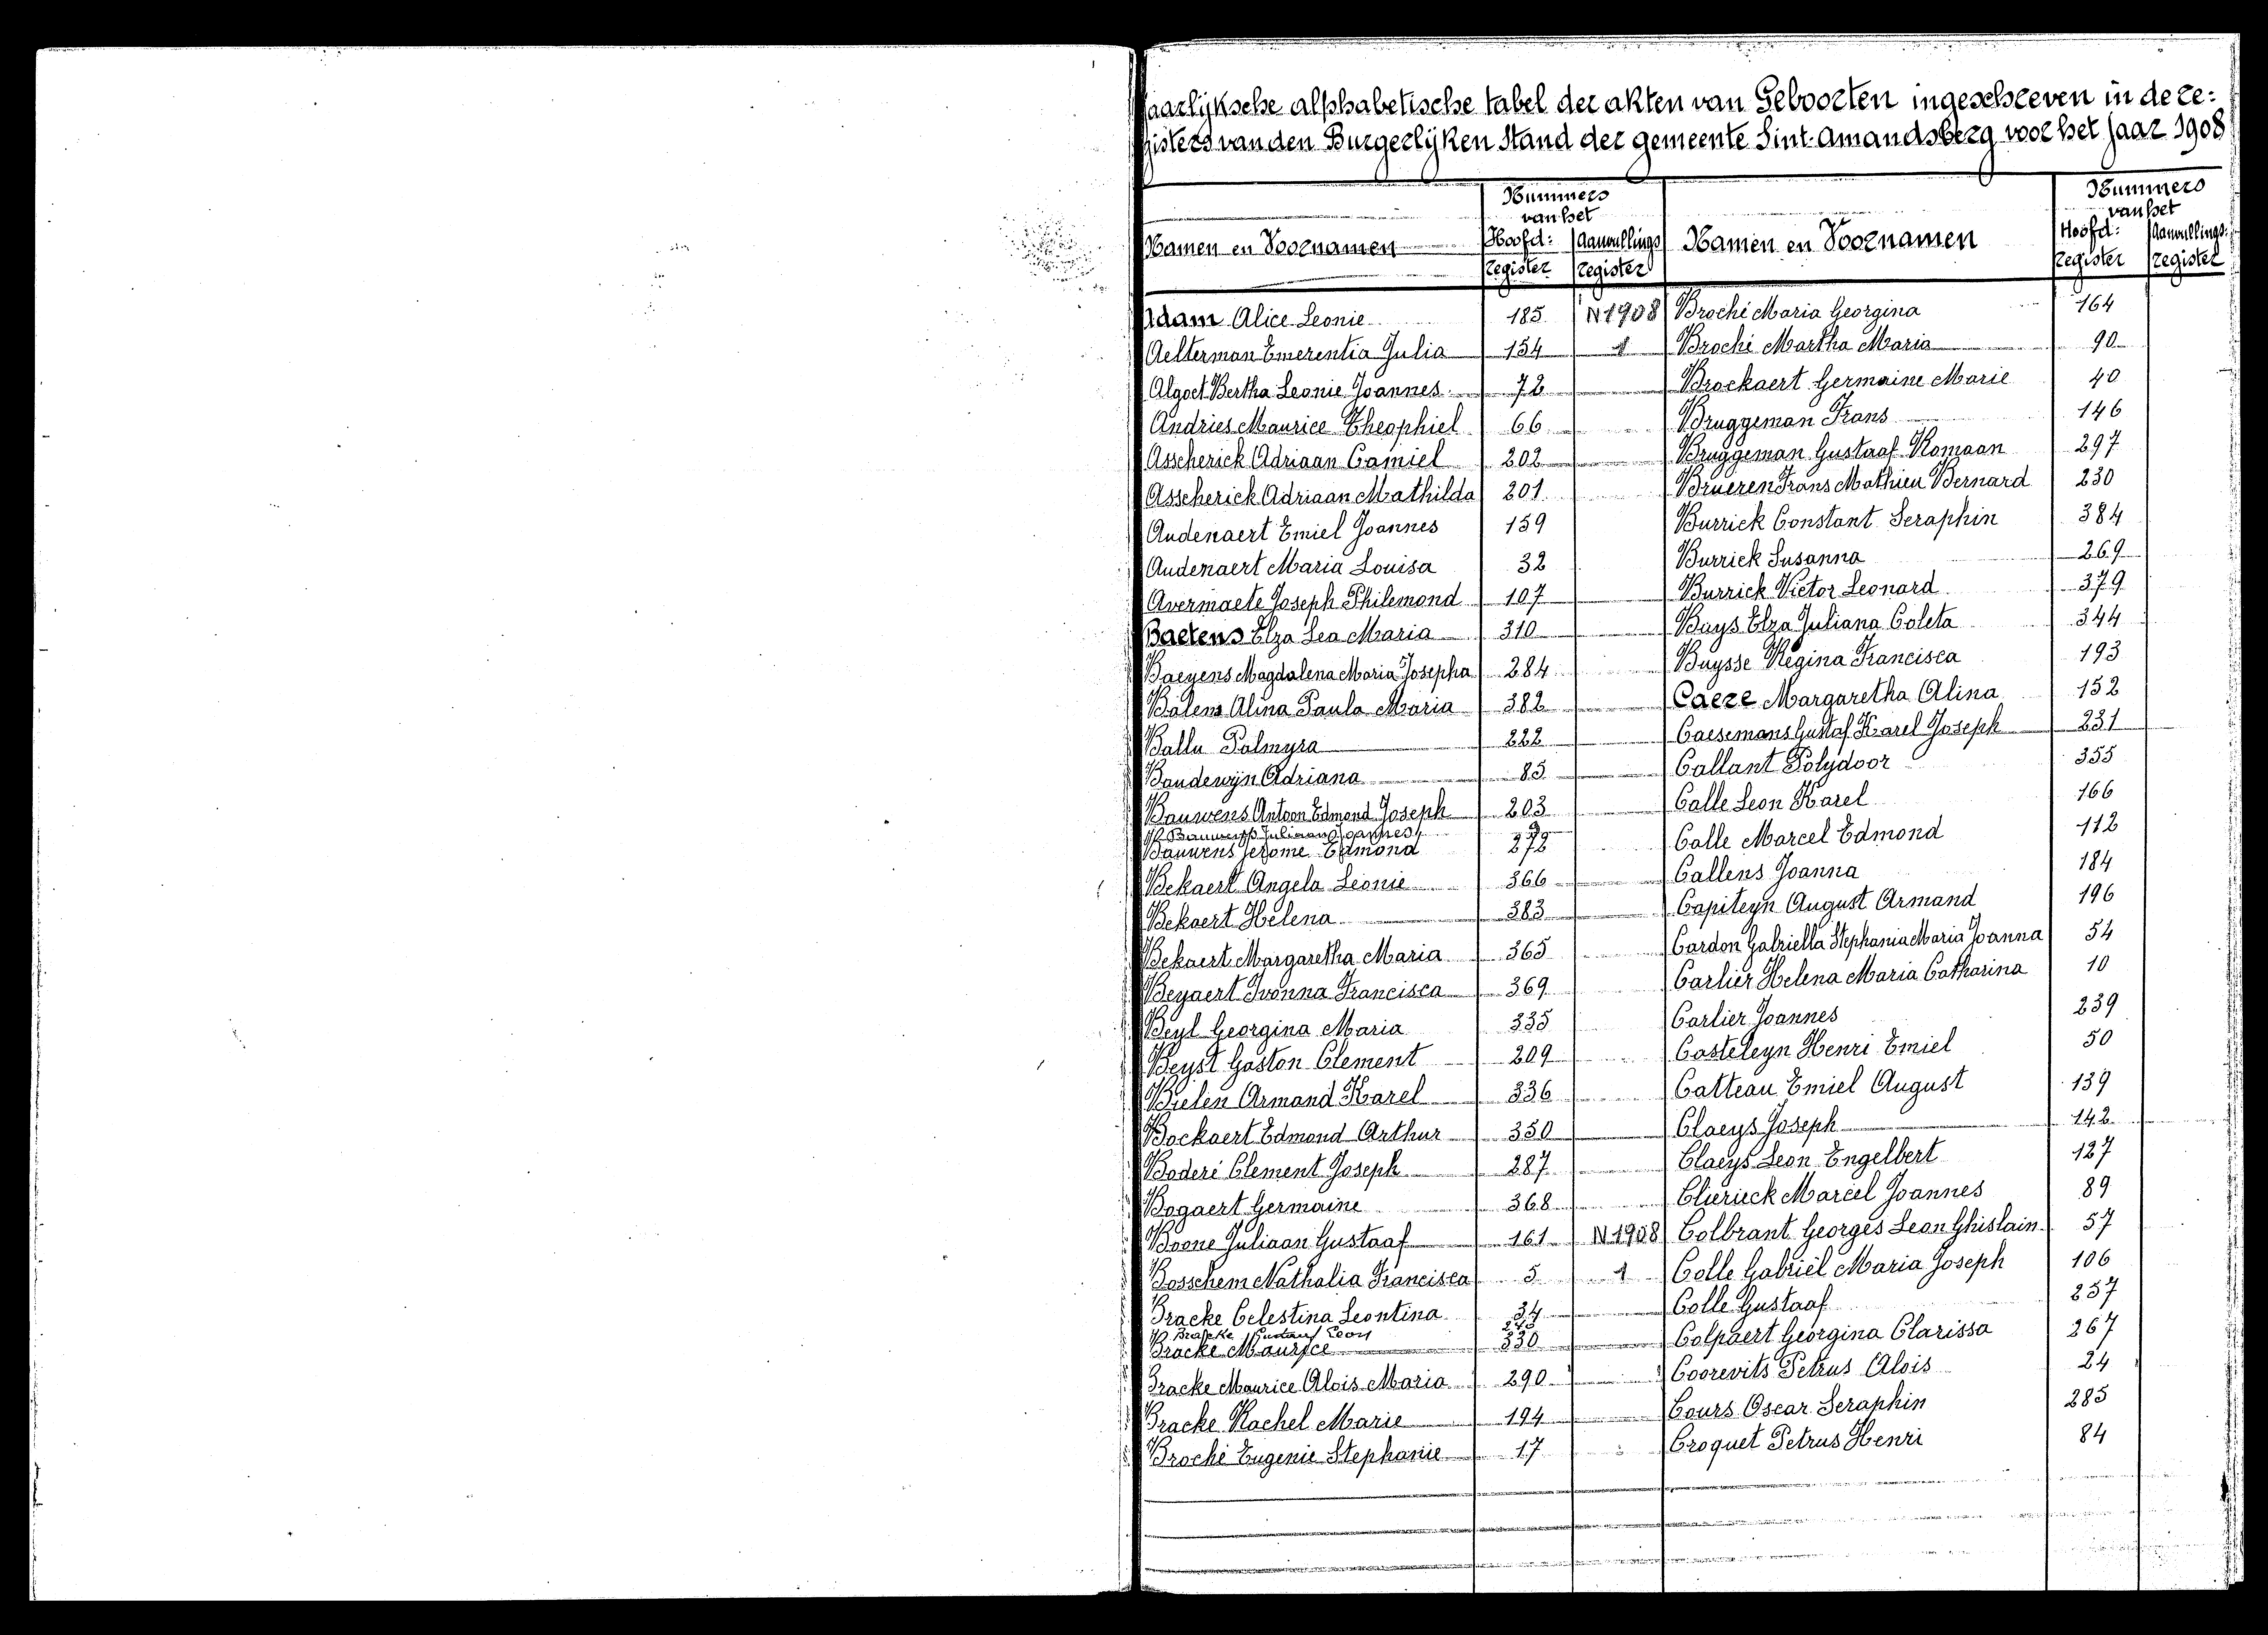 Jaarlijksche alphabetische tabel der akten van Geboorten ingeschreven in de re:
gisters van den Burgerlijken Stand der gemeente Sint-Amandsberg voor het jaar 1908
Namen en Voornamen
Nummers
van het
Hoofd: Aanvullings
register register
Namen en Voornamen
Nummers
van het
Hoofd: Aanvullings:
register register
Adam Alice Leonie 185 N 1908
Aelterman Emerentia Julia 154 1
Algoet Bertha Leonie Joannes 72
Andries Maurice Theophiel 66
Asscherick Adriaan Camiel 202
Asscherick Adriaan Mathilda 201
Audenaert Emiel Joannes 159
Audenaert Maria Louisa 32
Avermaete Joseph Philemond 107
Baetens Elza Lea Maria 310
Baeyens Magdalena Maria Josepha 284
Balens Alina Paula Maria 382
Ballu Palmyra 222
Baudewijn Adriana 85
Bauwens Antoon Edmond Joseph 203
Bauwens Juliaan Joannes
Bauwens Jerome Edmond 272
Bekaert Angela Leonie 366
Bekaert Helena 383
Bekaert Margaretha Maria 365
Beyaert Ivonna Francisca 369
Beyl Georgina Maria 335
Beyst Gaston Clement 209
Bielen Armand Karel 336
Bockaert Edmond Arthur 350
Boderé Clement Joseph 287
Bogaert Germaine 368
Boone Juliaan Gustaaf 161 N 1908
Bosschem Nathalia Francisca 5 1
Bracke Celestina Leontina 34
Bracke Gustaaf Leon
Bracke Maurice 330
Bracke Maurice Alois Maria 290
Bracke Rachel Marie 194
Broché Eugenie Stephanie 17
Broché Maria Georgina 164
Broché Martha Maria 90
Brockaert Germaine Marie 40
Bruggeman Frans 146
Bruggeman Gustaaf Romaan 297
Brueren Frans Mathieu Bernard 230
Burrick Constant Seraphin 384
Burrick Susanna 269
Burrick Victor Leonard 379
Buys Elza Juliana Coleta 344
Buysse Regina Francisca 193
Caeze Margaretha Alina 152
Caesemans Gustaf Karel Joseph 231
Callant Polydoor 355
Calle Leon Karel 166
Calle Marcel Edmond 112
Callens Joanna 184
Capiteyn August Armand 196
Cardon Gabriella Stephania Maria Joanna 54
Carlier Helena Maria Catharina 10
Carlier Joannes 239
Casteleyn Henri Emiel 50
Catteau Emiel August 139
Claeys Joseph 142
Claeys Leon Engelbert 127
Clierieck Marcel Joannes 89
Colbrant Georges Leon Ghislain 57
Colle Gabriël Maria Joseph 106
Colle Gustaaf 257
Colpaert Georgina Clarissa 267
Coorevits Petrus Alois 24
Cours Oscar Seraphin 285
Croquet Petrus Henri 84